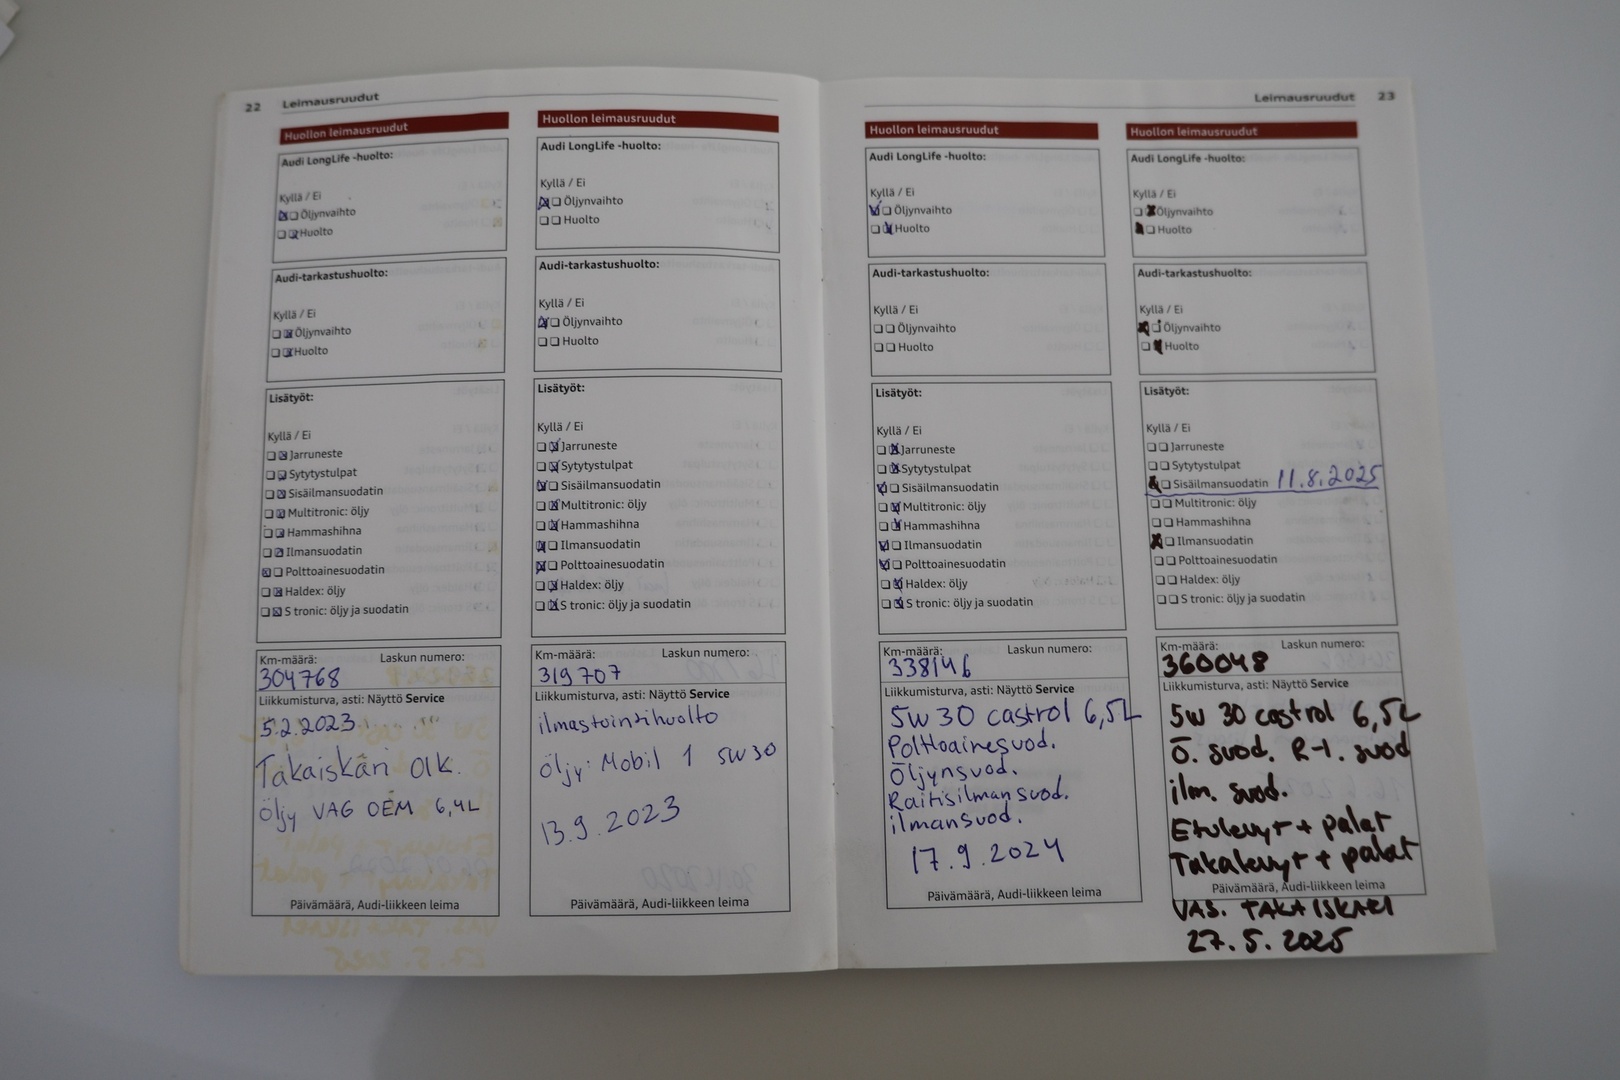 22 Leimausruudut
Huollon leimausruudut
Audi LongLife -huolto:
Kyllä / Ei
Öljynvaihto
Huolto
Audi-tarkastushuolto:
Kyllä / Ei
Öljynvaihto
Huolto
Lisätyöt:
Kyllä / Ei
Jarruneste
Sytytystulpat
Sisäilmansuodatin
Multitronic: öljy
Hammashihna
Ilmansuodatin
Polttoainesuodatin
Haldex: öljy
S tronic: öljy ja suodatin
Km-määrä: Laskun numero:
304768
Liikkumisturva, asti: Näyttö Service
5.2.2023
Takaiskari Olk.
Öljy VAG OEM 6,4L
Päivämäärä, Audi-liikkeen leima
Huollon leimausruudut
Audi LongLife -huolto:
Kyllä / Ei
Öljynvaihto
Huolto
Audi-tarkastushuolto:
Kyllä / Ei
Öljynvaihto
Huolto
Lisätyöt:
Kyllä / Ei
Jarruneste
Sytytystulpat
Sisäilmansuodatin
Multitronic: öljy
Hammashihna
Ilmansuodatin
Polttoainesuodatin
Haldex: öljy
S tronic: öljy ja suodatin
Km-määrä: Laskun numero:
319707
Liikkumisturva, asti: Näyttö Service
ilmastointihuolto
Öljy: Mobil 1 5W30
13.9.2023
Päivämäärä, Audi-liikkeen leima
Leimausruudut 23
Huollon leimausruudut
Audi LongLife -huolto:
Kyllä / Ei
Öljynvaihto
Huolto
Audi-tarkastushuolto:
Kyllä / Ei
Öljynvaihto
Huolto
Lisätyöt:
Kyllä / Ei
Jarruneste
Sytytystulpat
Sisäilmansuodatin
Multitronic: öljy
Hammashihna
Ilmansuodatin
Polttoainesuodatin
Haldex: öljy
S tronic: öljy ja suodatin
Km-määrä: Laskun numero:
338146
Liikkumisturva, asti: Näyttö Service
5W 30 castrol 6,5L
Polttoainesuod.
Öljynsuod.
Raitisilmansuod.
ilmansuod.
17.9.2024
Päivämäärä, Audi-liikkeen leima
Huollon leimausruudut
Audi LongLife -huolto:
Kyllä / Ei
Öljynvaihto
Huolto
Audi-tarkastushuolto:
Kyllä / Ei
Öljynvaihto
Huolto
Lisätyöt:
Kyllä / Ei
Jarruneste
Sytytystulpat
Sisäilmansuodatin 11.8.2025
Multitronic: öljy
Hammashihna
Ilmansuodatin
Polttoainesuodatin
Haldex: öljy
S tronic: öljy ja suodatin
Km-määrä: Laskun numero:
360048
Liikkumisturva, asti: Näyttö Service
5W 30 castrol 6,5L
Ö. suod. R-I. suod
ilm. suod.
Etulevyt + palat
Takalevyt + palat
Päivämäärä, Audi-liikkeen leima
VAS. TAKAISKARI
27.5.2025